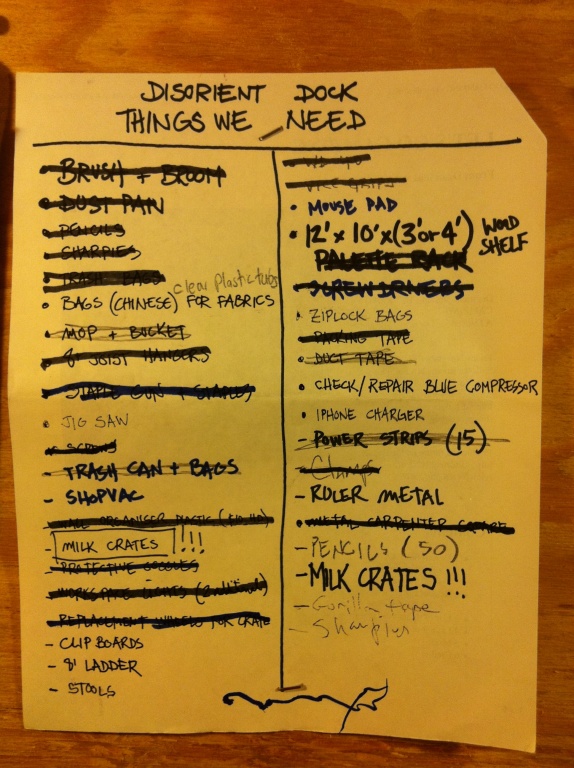 DISORIENT DOCK
THINGS WE NEED
• BRUSH + BROOM
• DUST PAN
• PENCILS
• SHARPIES
• TRASH BAGS
clear plastic tubs
• BAGS (CHINESE) FOR FABRICS
• MOP + BUCKET
• 8' JOIST HANGERS
• STAPLE GUN + STAPLES
• JIG SAW
• SCREWS
- TRASH CAN + BAGS
- SHOPVAC
ORGANISER PLASTIC
- MILK CRATES !!!
- PROTECTIVE GOGGLES
- WORKSPACE
- REPLACEMENT WHEELS FOR CRATE
- CLIP BOARDS
- 8' LADDER
- STOOLS
• WD 40
•
• MOUSE PAD
• 12' x 10' x (3' or 4') WOOD SHELF
PALETTE RACK
• SCREWDRIVERS
• ZIPLOCK BAGS
• PACKING TAPE
• DUCT TAPE
• CHECK/REPAIR BLUE COMPRESSOR
• IPHONE CHARGER
- POWER STRIPS (15)
- Clamp
- RULER METAL
• METAL CARPENTER SQUARE
- PENCILS (50)
- MILK CRATES !!!
- Gorilla tape
- Sharpies